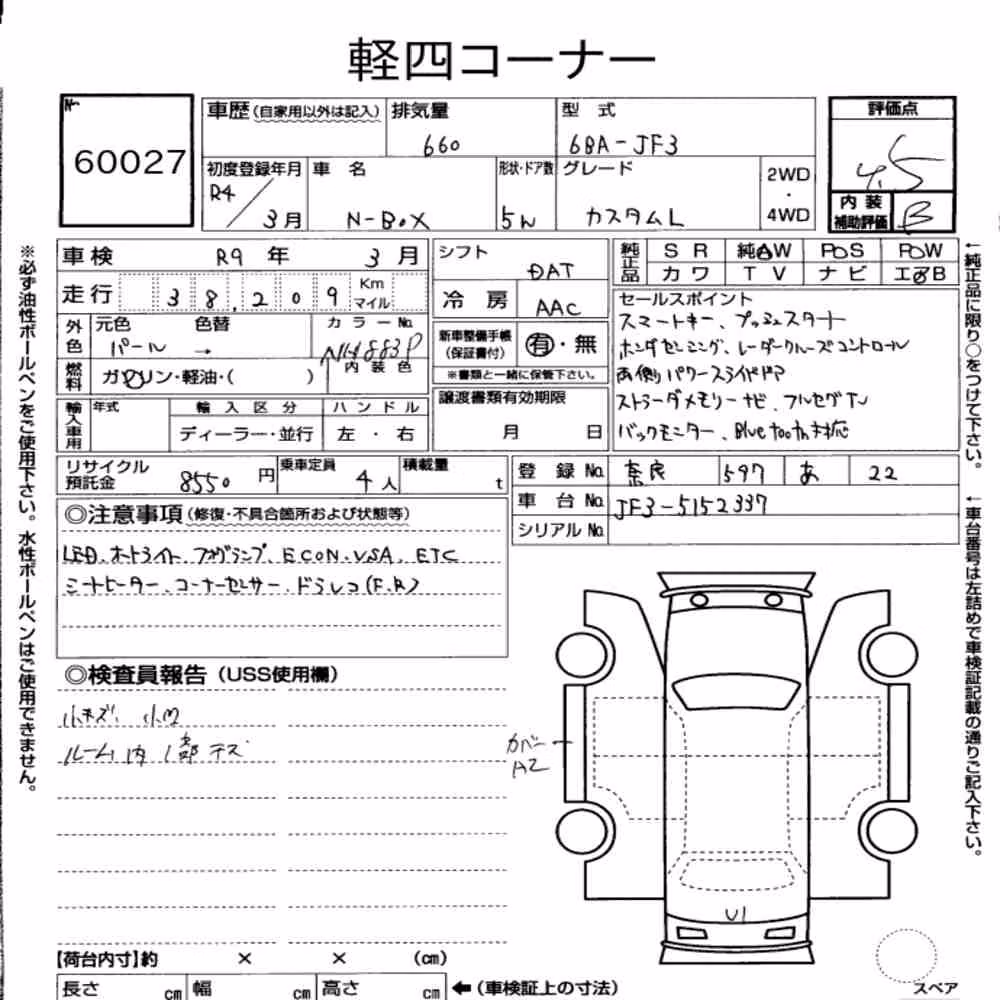 軽四コーナー
No.
60027
車歴(自家用以外は記入) 排気量 660
型式 6BA-JF3
評価点 4.5
内装補助評価 B
初度登録年月 R4/3月
車名 N-BOX
形状・ドア数 5W
グレード カスタムL
2WD・4WD
車検 R9年 3月
走行 38,209 Km マイル
外色 元色 パール 色替 →
カラーNo. NH883P
内装色
燃料 ガソリン・軽油・( )
輸入車用 年式 輸入区分 ディーラー・並行 ハンドル 左・右
シフト DAT
冷房 AAC
新車整備手帳(保証書付) 有・無
※書類と一緒に保管下さい。
譲渡書類有効期限
月 日
純正品 SR 純AW PS PW
カワ TV ナビ エアB
セールスポイント
スマートキー、プッシュスタート
ホンダセンシング、レーダークルーズコントロール
両側パワースライドドア
ストラーダメモリーナビ、フルセグTV
バックモニター、Bluetooth対応
リサイクル預託金 8550円
乗車定員 4人
積載量 t
登録No. 奈良 597 あ 22
車台No. JF3-5152337
シリアルNo.
◎注意事項(修復・不具合箇所および状態等)
LED、オートライト、フォグランプ、ECON、VSA、ETC
シートヒーター、コーナーセンサー、ドラレコ(F.R)
◎検査員報告(USS使用欄)
小キズ、小凹
ルーム内1部テス
カバー
A2
U1
スペア
【荷台内寸】約 × × (cm)
長さ cm 幅 cm 高さ cm ←(車検証上の寸法)
※必ず油性ボールペンをご使用下さい。水性ボールペンはご使用できません。
←純正品に限り○をつけて下さい。
←車台番号は左詰めで車検証記載の通りご記入下さい。